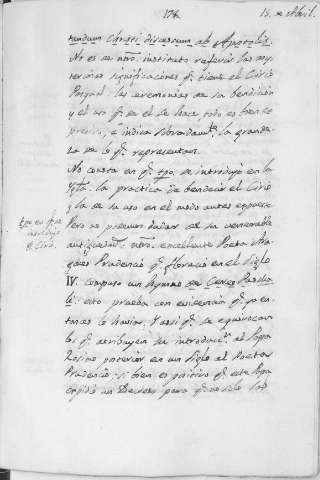 174.
15. de Abril.
tandum Christi discessum ab Apostolis.
No es de ntro. instituto referir las mys-
teriosas significaciones q.e tiene el Cirio
Pasqual: las ceremonias de su bendicion
y el uso q.e de el se hace, todo es bien ex-
presivo, e indica sobradam.te la grande-
za de lo q.e representan.
No consta en q.e tpo. se introdujo en la
Ygl.a la practica de bendecir el Cirio
y la de su uso en el modo antes expuesto
Pero no podemos dudar de su venerable
antiguedad: ntro. excellente Poeta Ara-
gones Prudencio q.e florecio en el siglo
IV. compuso un Hymno de Cereo Pascha-
li: esto prueba con evidencia q.e ya en-
tonces lo havia. Y assi q.e se equivocan
los q.e atribuyen su introducc.n al Papa
Zosimo posterior en un siglo al Poeta
Prudencio: si bien es positivo q.e este Papa
expidio un Decreto para q.e no solo las
tpo en q.e se
introdujo
el Cirio.